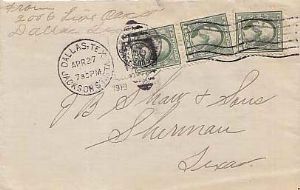 From
2006 Live Oak
Dallas
DALLAS, TEX.
APR 27
7 30 PM
1919
JACKSON ST. STA.
J B Shaw & Sons
Sherman
Texas